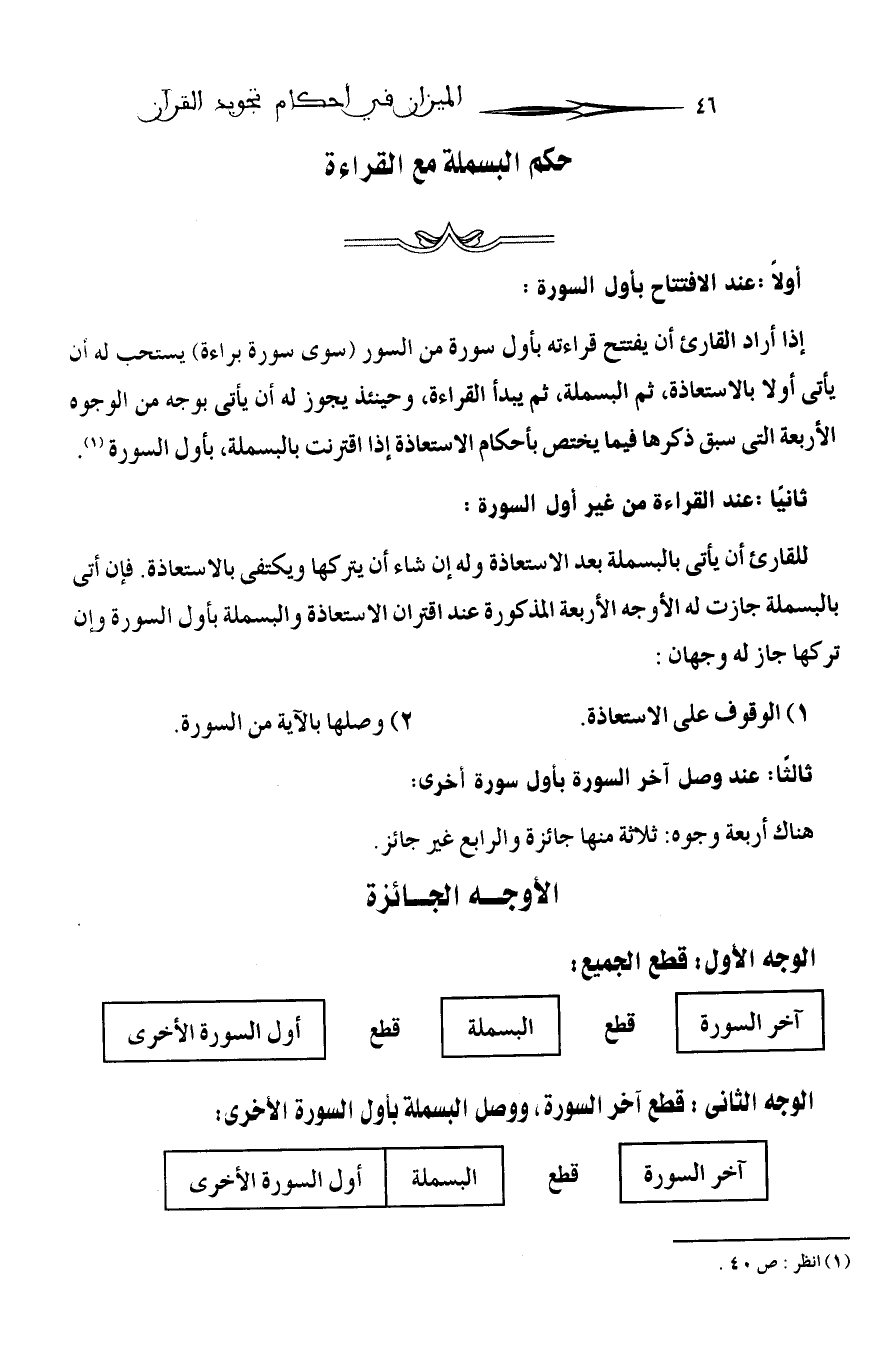 ٤٦ الميزان في أحكام تجويد القرآن
حكم البسملة مع القراءة
أولاً : عند الافتتاح بأول السورة :
إذا أراد القارئ أن يفتتح قراءته بأول سورة من السور (سوى سورة براءة) يستحب له أن
يأتى أولا بالاستعاذة، ثم البسملة، ثم يبدأ القراءة، وحينئذ يجوز له أن يأتى بوجه من الوجوه
الأربعة التى سبق ذكرها فيما يختص بأحكام الاستعاذة إذا اقترنت بالبسملة، بأول السورة (١).
ثانيًا : عند القراءة من غير أول السورة :
للقارئ أن يأتى بالبسملة بعد الاستعاذة وله إن شاء أن يتركها ويكتفى بالاستعاذة. فإن أتى
بالبسملة جازت له الأوجه الأربعة المذكورة عند اقتران الاستعاذة والبسملة بأول السورة وإن
تركها جاز له وجهان :
١) الوقوف على الاستعاذة. ٢) وصلها بالآية من السورة.
ثالثًا: عند وصل آخر السورة بأول سورة أخرى:
هناك أربعة وجوه: ثلاثة منها جائزة والرابع غير جائز.
الأوجـــه الجـــائزة
الوجه الأول: قطع الجميع:
آخر السورة قطع البسملة قطع أول السورة الأخرى
الوجه الثانى : قطع آخر السورة، ووصل البسملة بأول السورة الأخرى:
آخر السورة قطع البسملة أول السورة الأخرى
(١) انظر : ص ٤٠ .